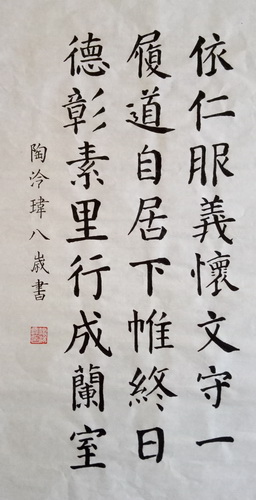 依仁服義懷文守一
履道自居下帷終日
德彰素里行成蘭室
陶泠瑋八歲書